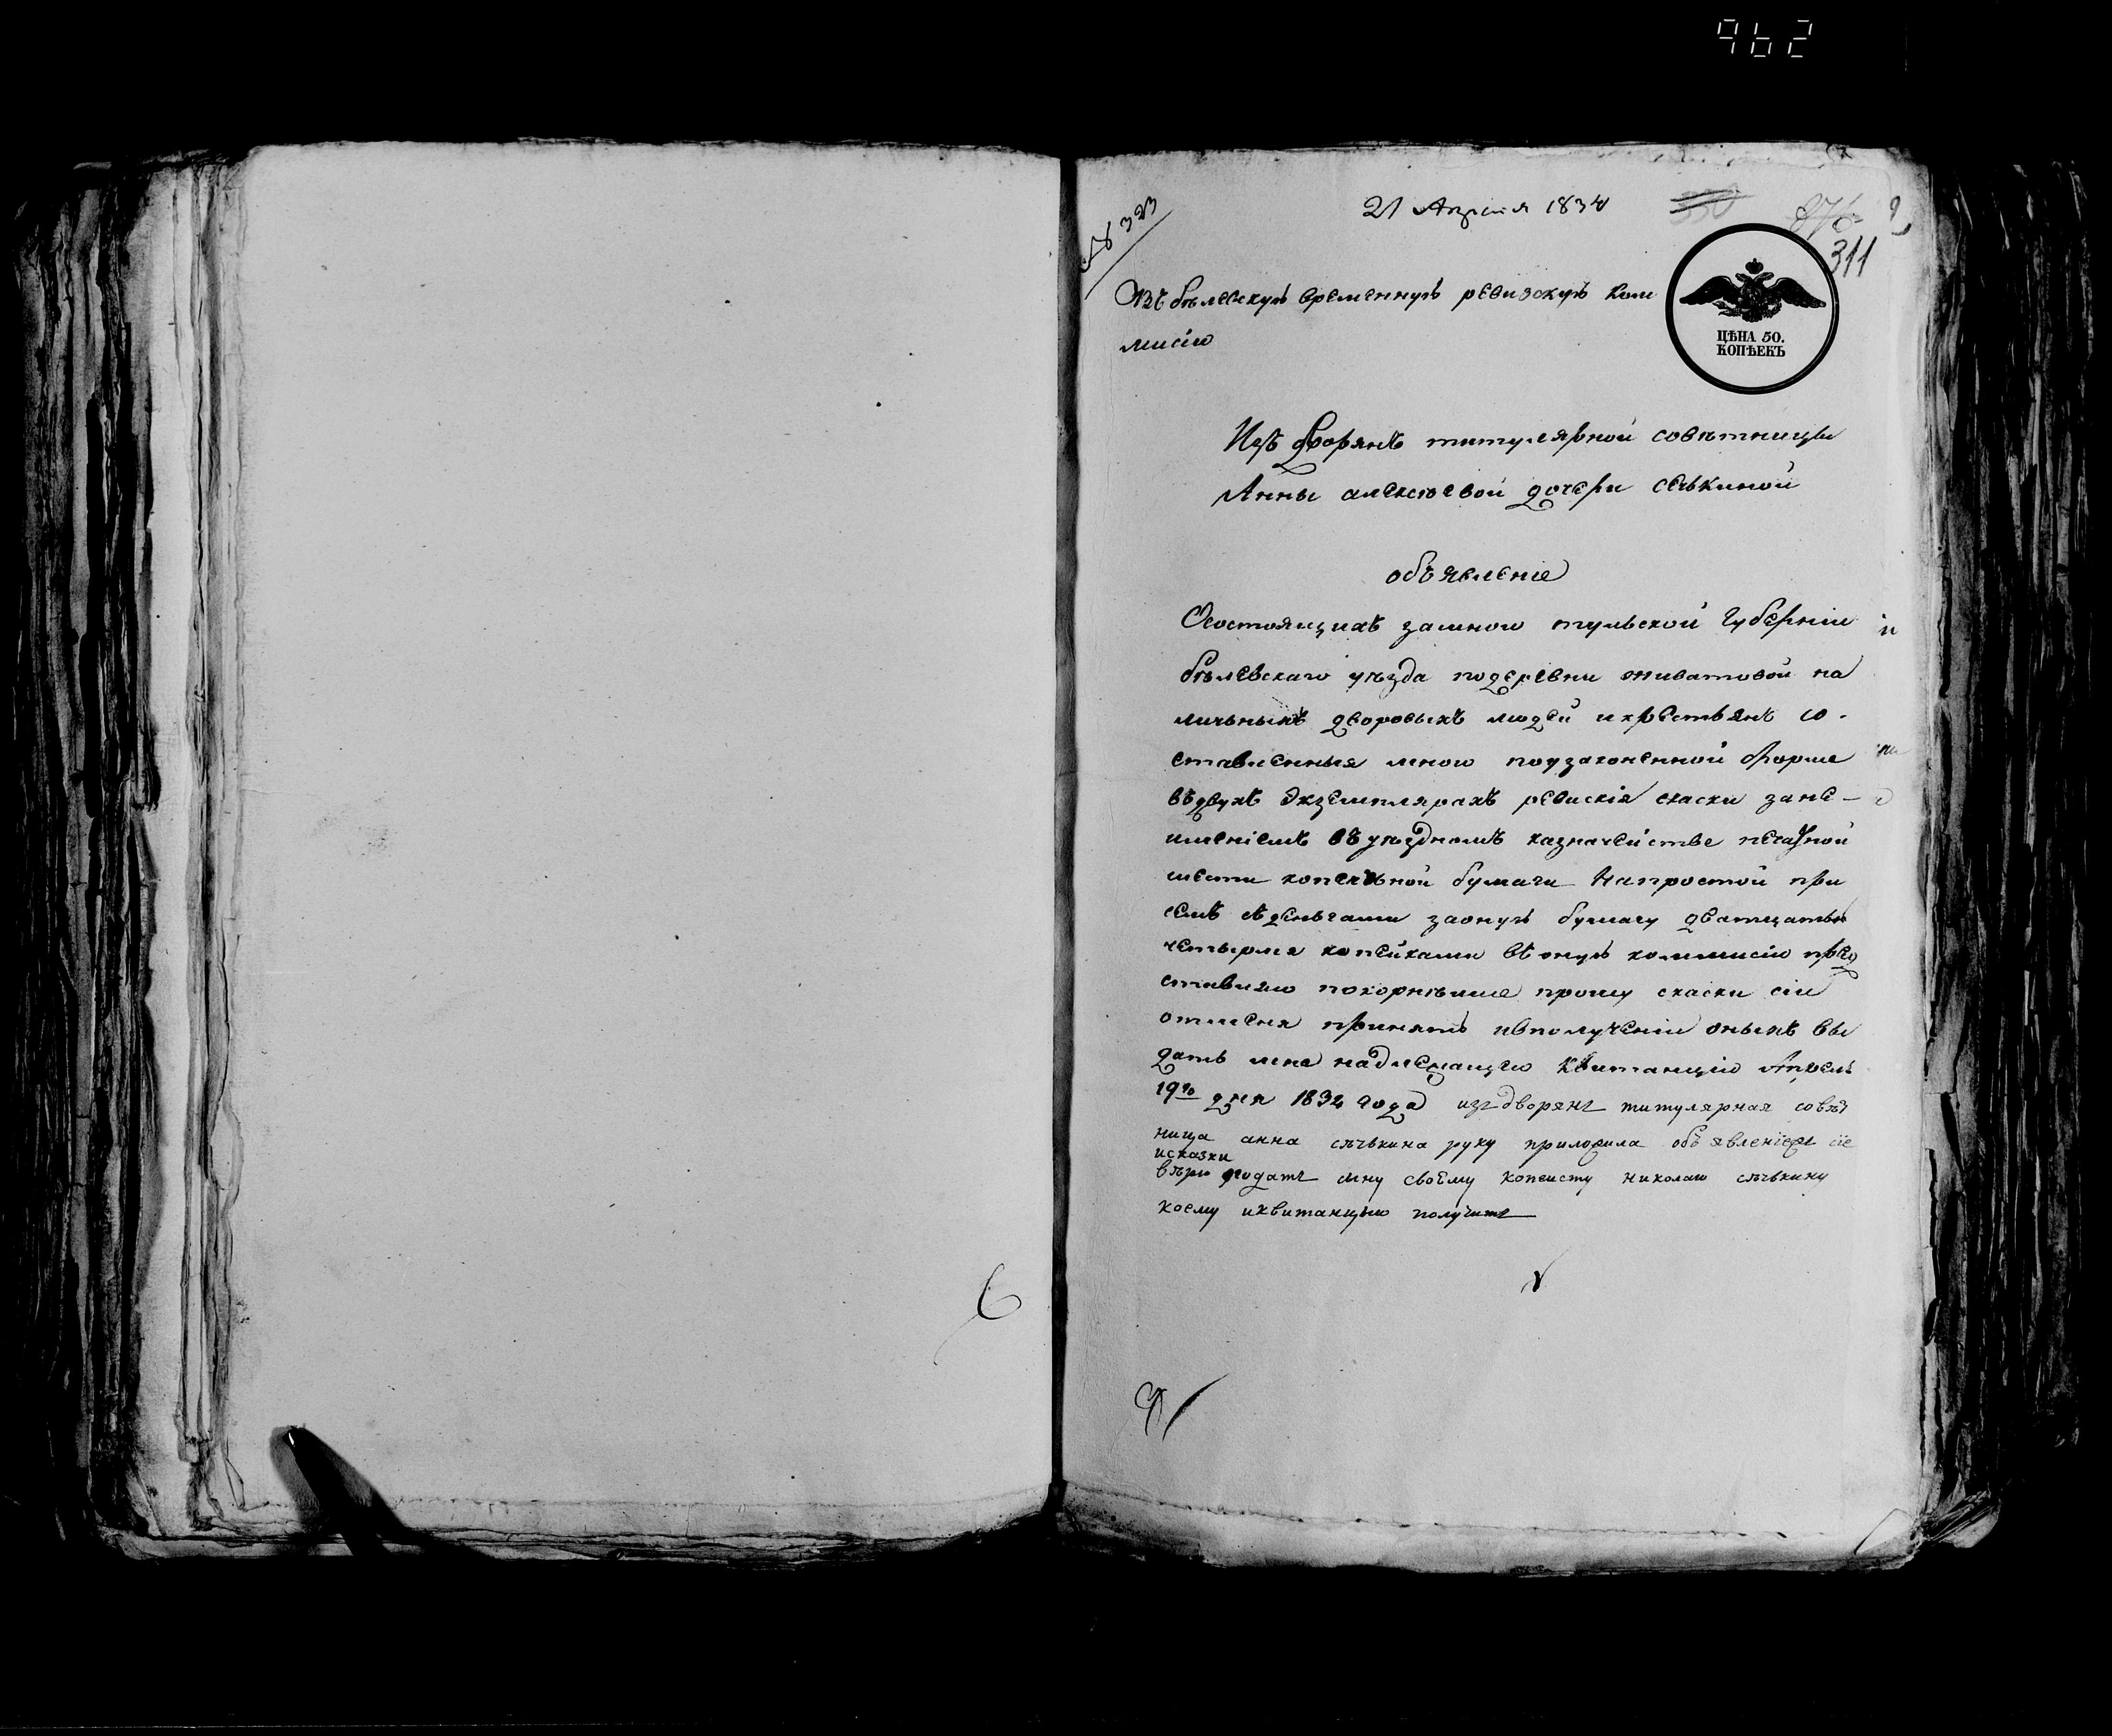 962
№ 323
21 Апреля 1834
311
Въ белевскую временную ревизскую ком
мисію
ЦѢНА 50.
КОПѢЕКЪ
Изъ дворянъ титулярной совѣтницы
Анны алексѣевой дочери сечькиной
объявленіе
О состоящихъ замною тульской губерніи
бѣлевскаго уѣзда подеревни живатовой на
личьныхъ дворовыхъ людей икрестьянъ со-
ставленныя мною поузаконенной форме
въдвухъ экземплярахъ ревиския скаски зане-
имениемъ въ уѣздномъ казначействе печатной
шести копеечьной бумаги на простой при
семъ съ деньгами заоную бумагу дватцатью
четырмя копейками въ оную коммисию пред
ставляю покорнѣише прошу скаски сіи
отменя принять ивполучении оныхъ вы
дать мне надлежащею квитанцію Апреля
19го дня 1834 года изъ дворянъ титулярная совѣт
ница анна сѣчькина руку приложила объявленіеже сіе
исказки
вѣрю подать сыну своему копеисту николаю сѣчькину
коему иквитанцыю получить
6